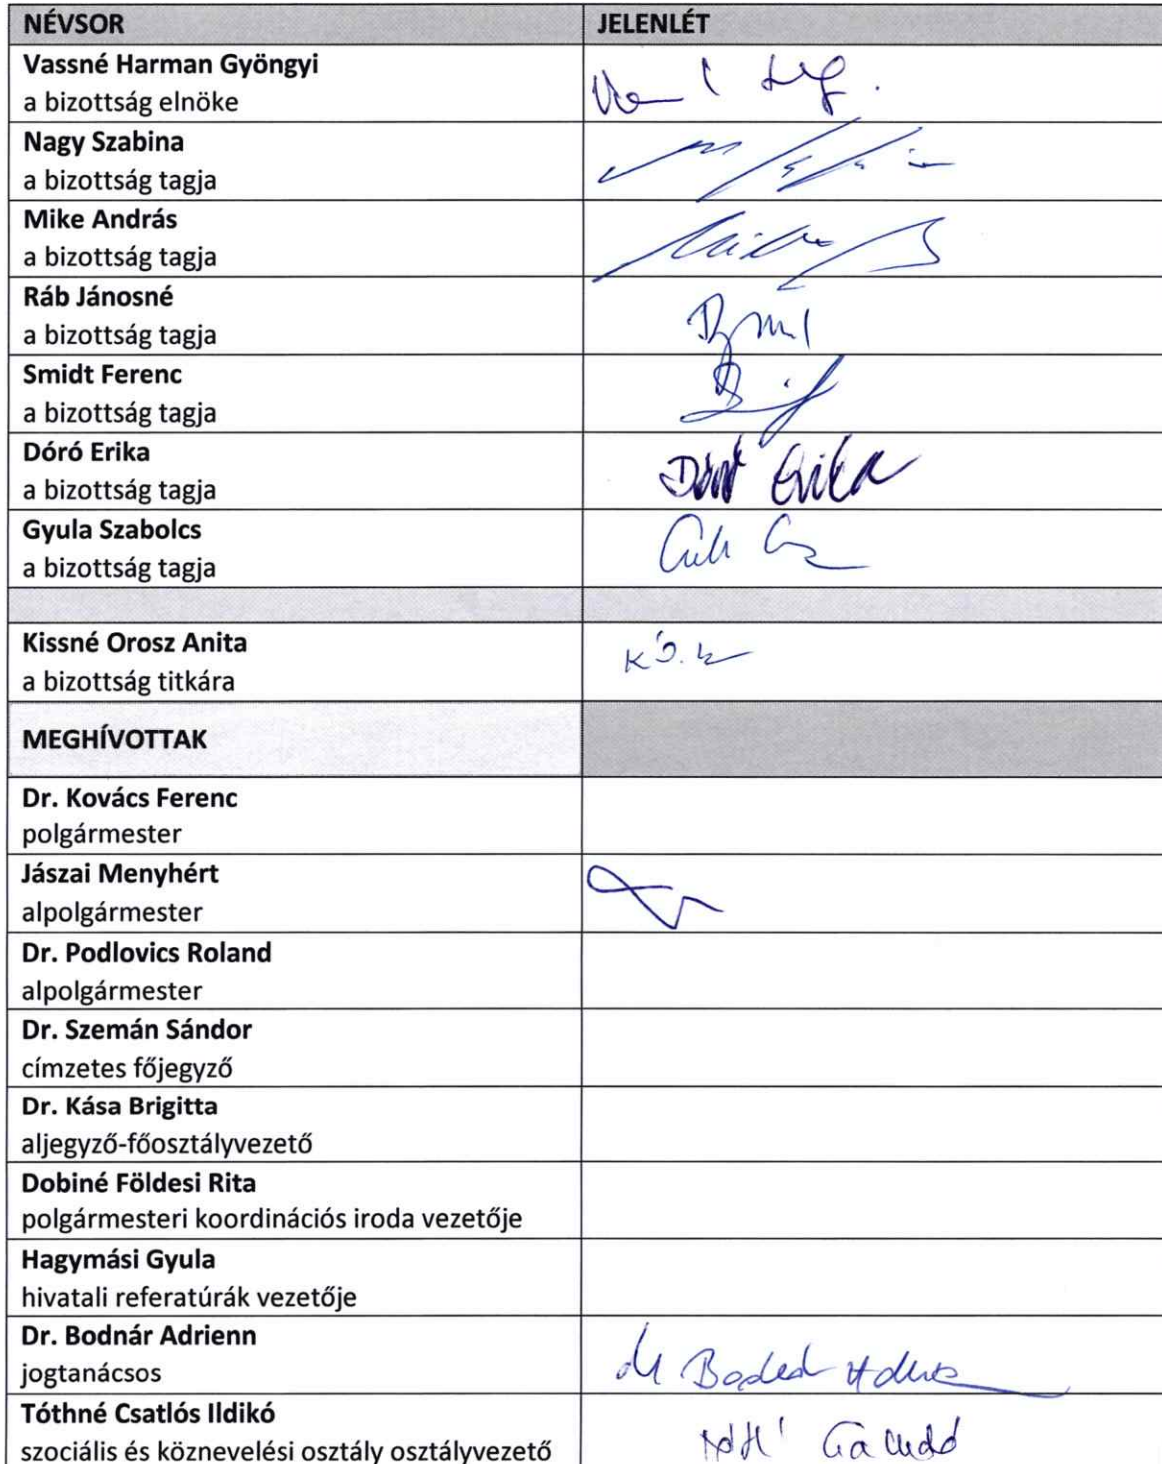 NÉVSOR JELENLÉT
Vassné Harman Gyöngyi
a bizottság elnöke
Nagy Szabina
a bizottság tagja
Mike András
a bizottság tagja
Ráb Jánosné
a bizottság tagja
Smidt Ferenc
a bizottság tagja
Dóró Erika
a bizottság tagja
Dóró Erika
Gyula Szabolcs
a bizottság tagja
Kissné Orosz Anita
a bizottság titkára
MEGHÍVOTTAK
Dr. Kovács Ferenc
polgármester
Jászai Menyhért
alpolgármester
Dr. Podlovics Roland
alpolgármester
Dr. Szemán Sándor
címzetes főjegyző
Dr. Kása Brigitta
aljegyző-főosztályvezető
Dobiné Földesi Rita
polgármesteri koordinációs iroda vezetője
Hagymási Gyula
hivatali referatúrák vezetője
Dr. Bodnár Adrienn
jogtanácsos
Tóthné Csatlós Ildikó
szociális és köznevelési osztály osztályvezető